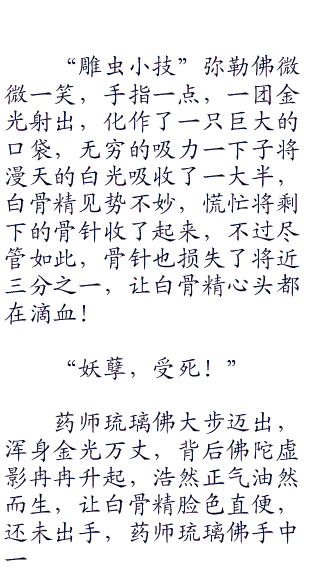 “雕虫小技”弥勒佛微
微一笑，手指一点，一团金
光射出，化作了一只巨大的
口袋，无穷的吸力一下子将
漫天的白光吸收了一大半，
白骨精见势不妙，慌忙将剩
下的骨针收了起来，不过尽
管如此，骨针也损失了将近
三分之一，让白骨精心头都
在滴血！
“妖孽，受死！”
药师琉璃佛大步迈出，
浑身金光万丈，背后佛陀虚
影冉冉升起，浩然正气油然
而生，让白骨精脸色直便，
还未出手，药师琉璃佛手中
一